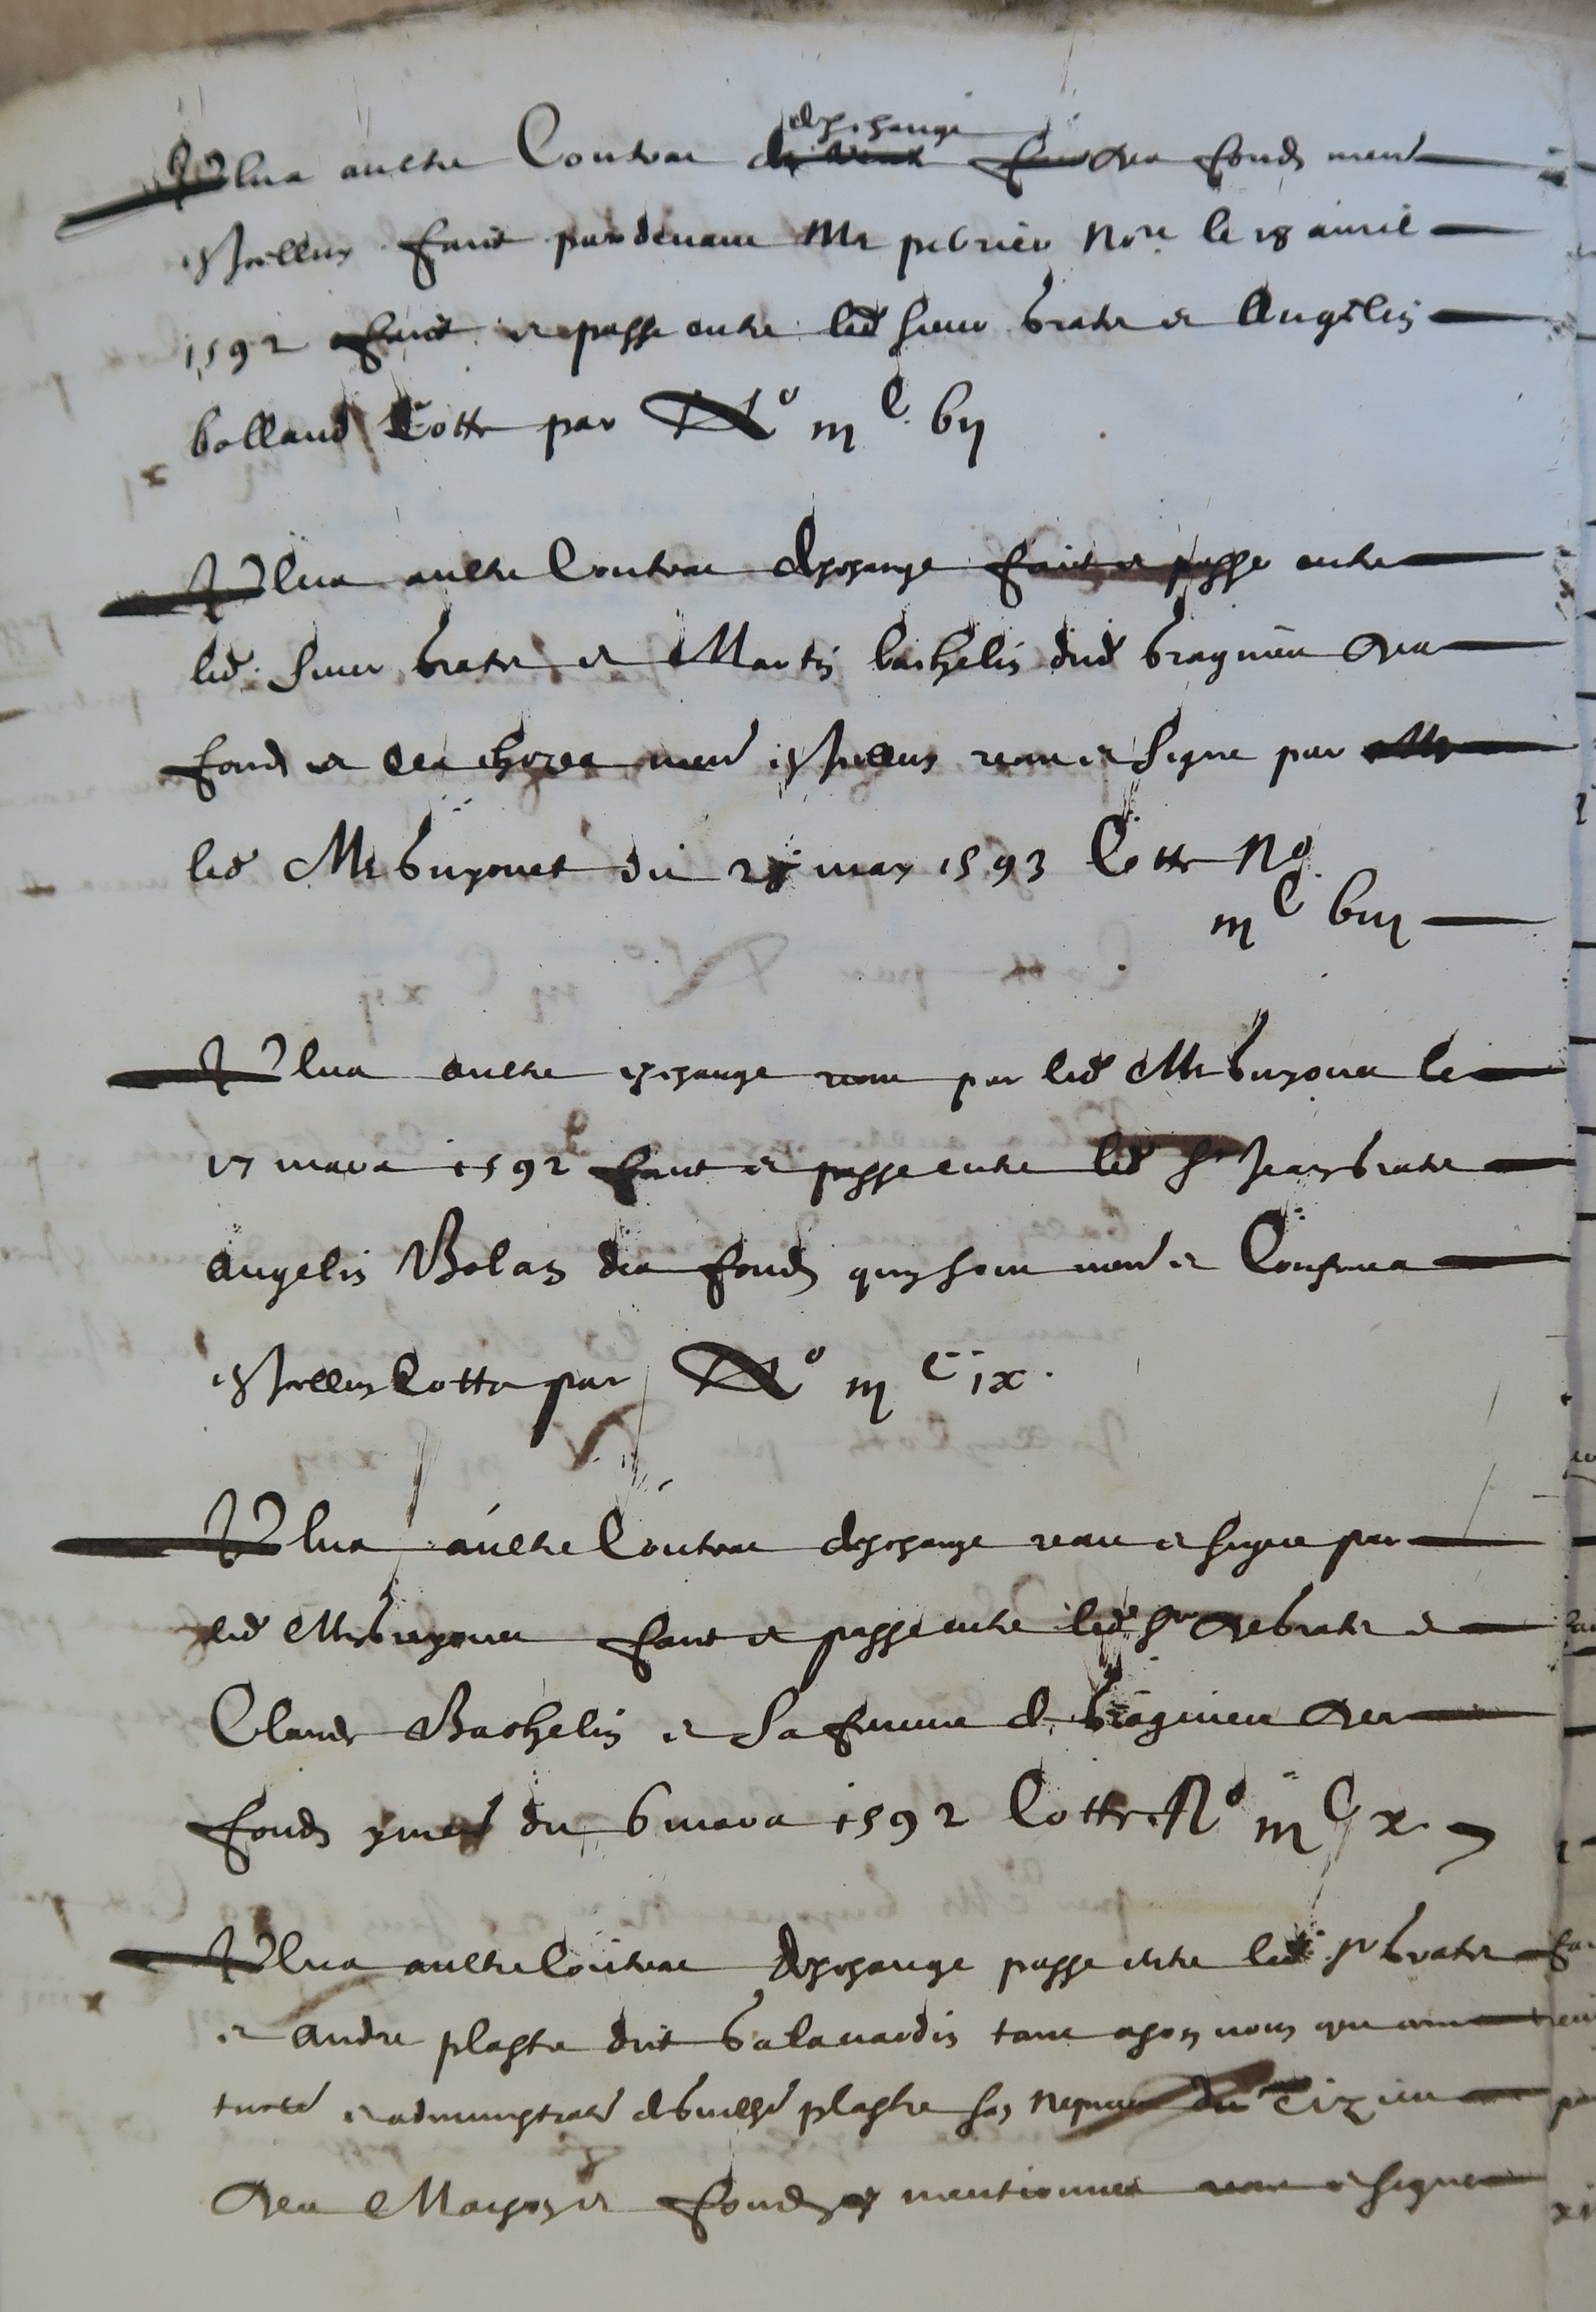 Plus aultre Contrac d'eschange des fonds ment
esd icelluy faict pardevant Me pebrieu Nore le 18 avril
1592 faict et passe entre led sieur brate et Angelin
bolland Cotte par No iii C vii
Plus aultre Contrac deschange faict et passe entre
led sieur brate et Martin bachelin dud bragnieu des
fonds et des choses men icelluy receu et signe par
led Me buyonet du 28 may 1593 Cotte No
iii C viii
Plus aultre eschange receu par led Me buyonet le
17 mars 1592 faict et passe entre led Sr Jean brate
Angelin Bolan des fonds quy sont men et Confines
icelluy Cotte par No iii C ix
Plus aultre Contrac deschange receu et signe par
led Me buyonet faict et passe entre led Sr de brate et
Claude Bachelin et Sa femme de bragnieu des
fonds y men du 6 mars 1592 Cotte No iii C x
Plus aultre Contrac deschange passe entre led Sr brate
et Andre plastre dict balavardin tant a son nom que comme
tuteur et administrateur de plastre son nepveu du
des Mayson et fonds y mentionnes receu et signe